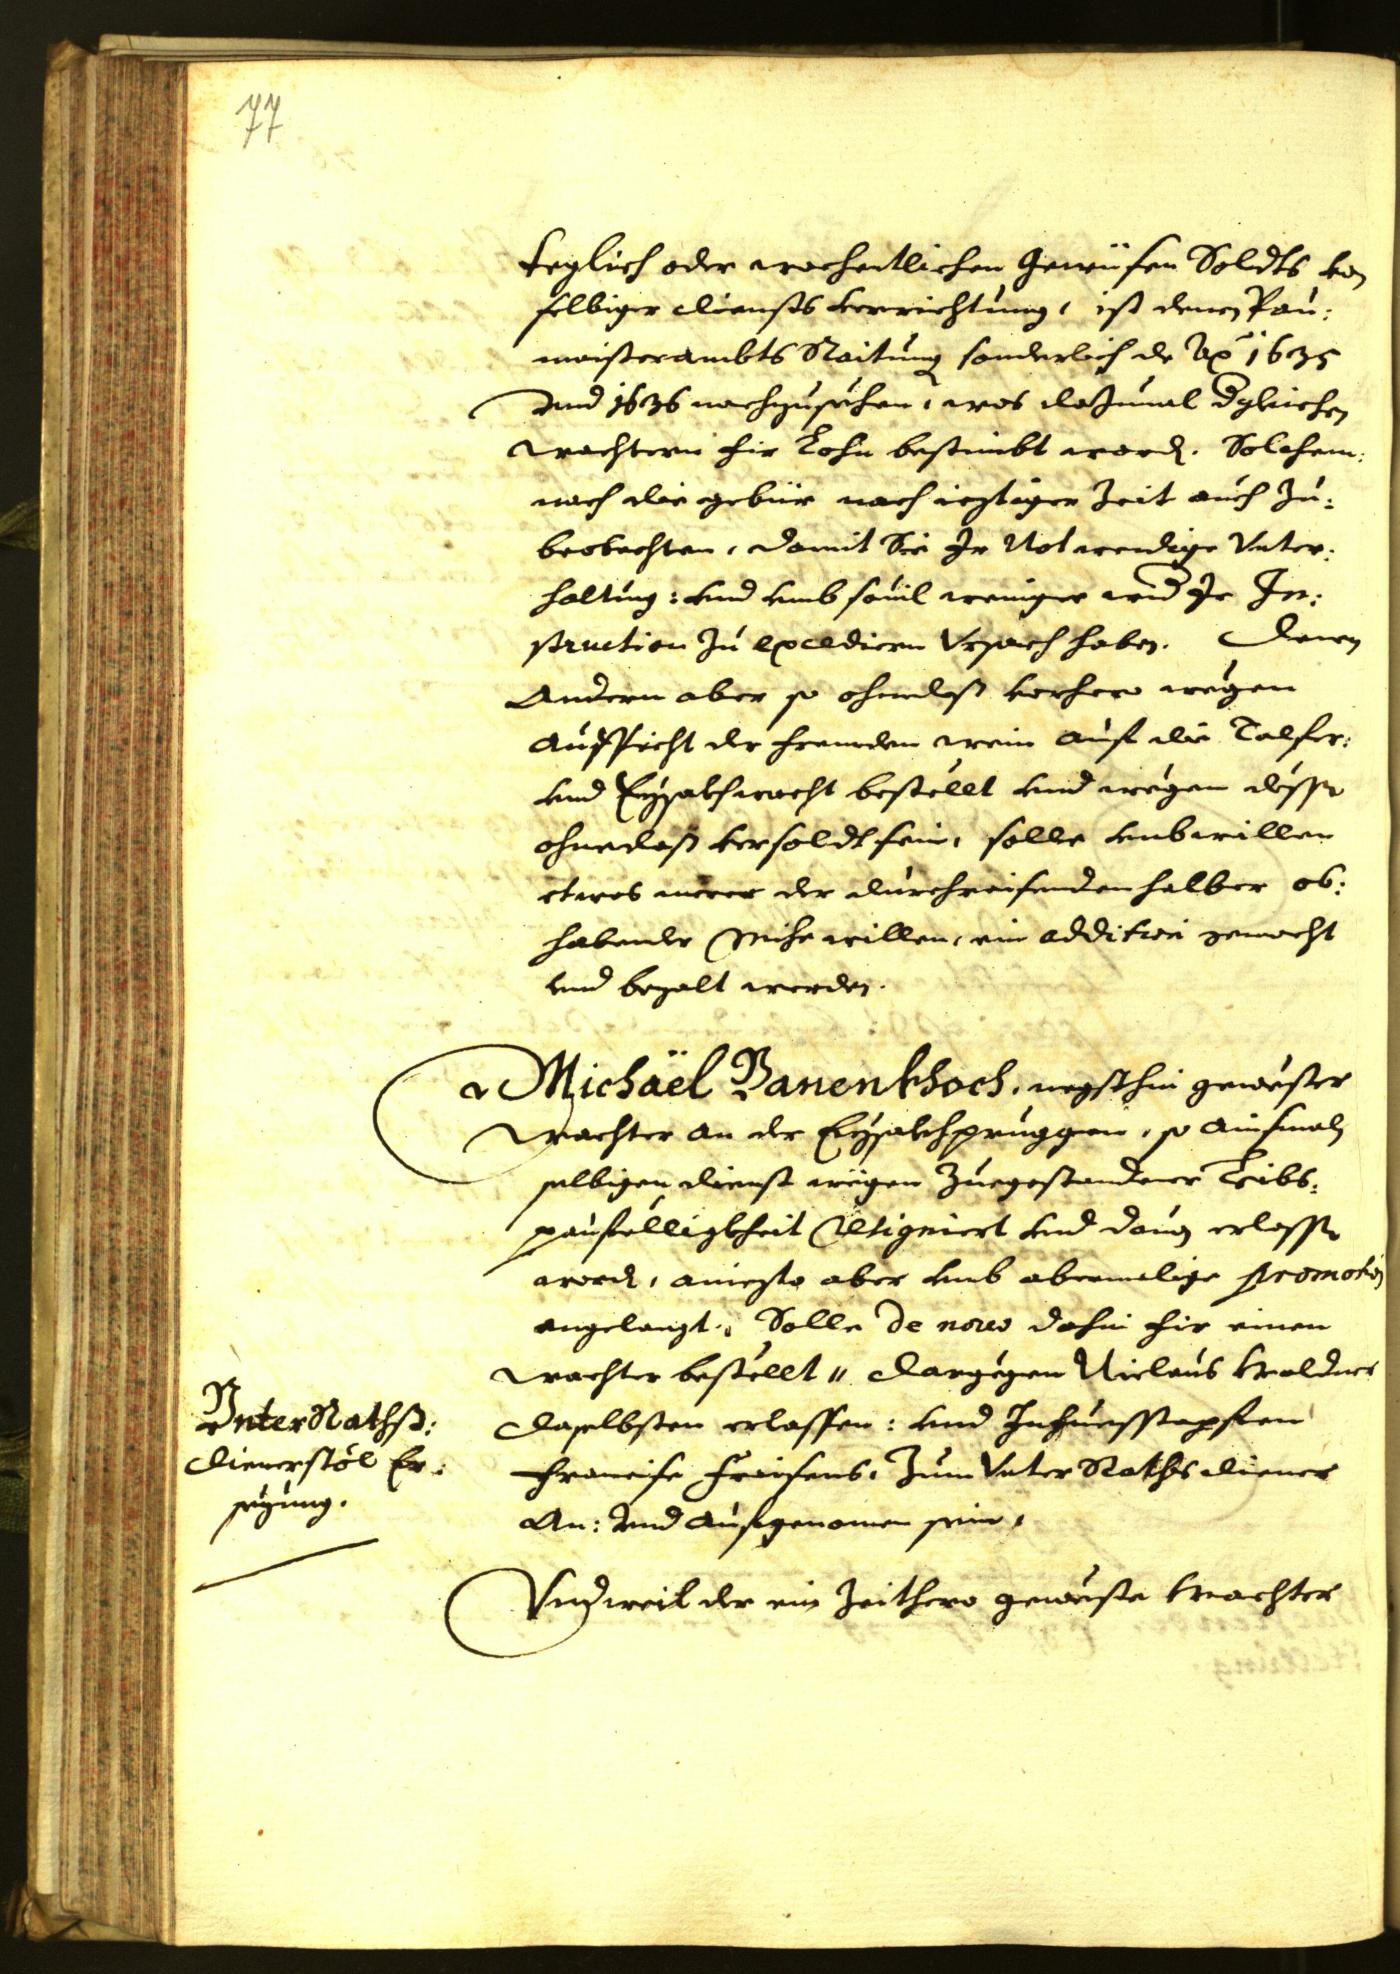 77
teglich oder wochentlichen Gewisen Soldts von
selbiger diensts verrichtung, ist denen Pau:
maisterambts Raitung sonderlich de Aō 1635
vnd 1636 nachzusechen, was dazumal dgleichen
wachtern fir Lohn bestimbt word. Solchem:
nach die gebür nach ieztiger Zeit auch Zu:
beobachten, damit Sie Ir Notwendige Vnter:
haltung: vnd vmb souil weniger wid Ir In:
struction Zu excediern Vrsach haben. Denen
Andern aber so ohnedaß vorhero wegen
Aufsicht der frembden wein auf die Talfer:
vnd Eysakhwacht bestellt vnd wegen dessen
ohnedaß versoldt sein, solle vmbwillen
etwas merer der durchreisenden halber ob:
habender Mihe willen, ein addition gemacht
vnd bezalt werden.
Michaël Banenkhoch, negsthin gewester
wachter an der Eysakhpruggen, so ainsmals
selbigen dienst wegen Zuegestandener Leibs:
paufelligkheit resigniert vnd dauon erlassen
word, aniezto aber vmb abermalige promotion
angelangt, Solle de nouo dahin fir einen
wachter bestellt // dargegen Niclaus Waldner
daselbsten erlassen: vnd In fuesstapfen
Francisc Fraisens, Zum Vnter Raths diener
An: vnd aufgenomen sein,
Vnter Rathß:
dienerstöl Er:
sezung.
Vnd weil der ein Zeithero geweste wachter